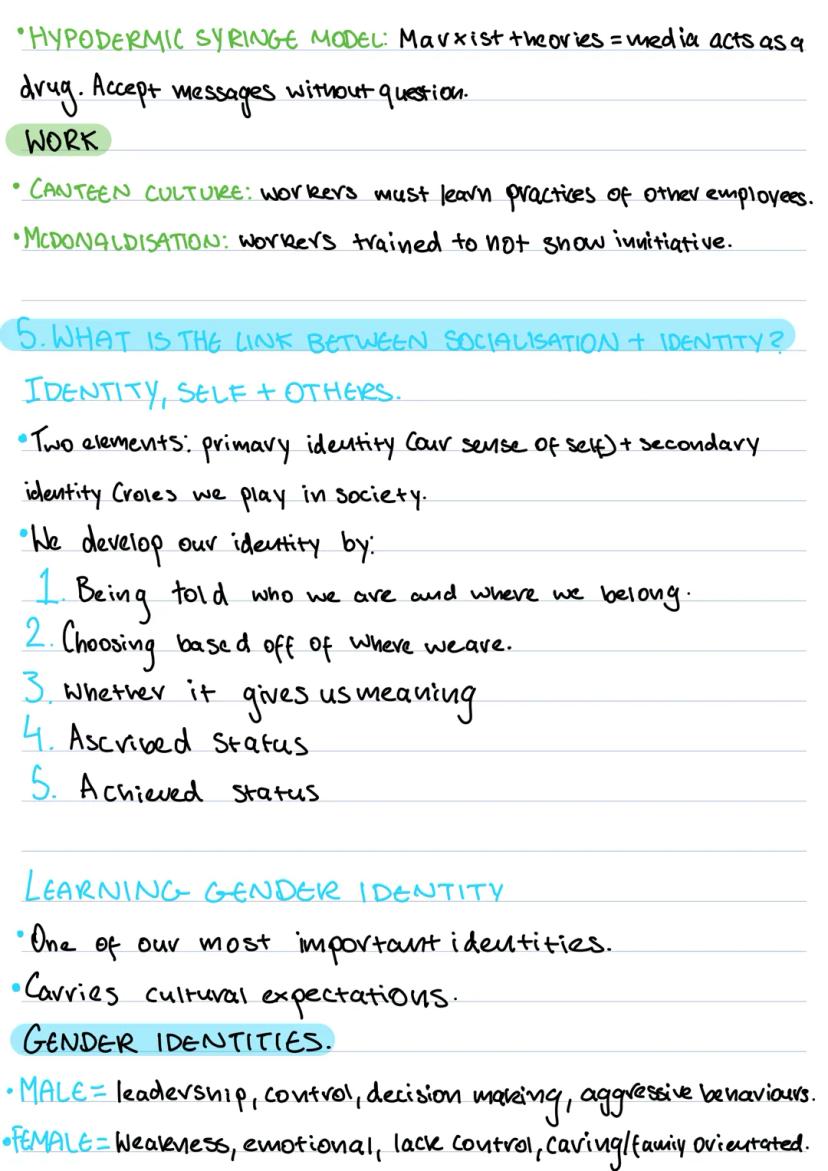 •HYPODERMIC SYRINGE MODEL: Marxist theories = media acts as a
drug. Accept messages without question.
WORK
• CANTEEN CULTURE: workers must learn practices of other employees.
•MCDONALDISATION: workers trained to not show innitiative.
5. WHAT IS THE LINK BETWEEN SOCIALISATION + IDENTITY?
IDENTITY, SELF + OTHERS.
•Two elements: primary identity (our sense of self) + secondary
identity (roles we play in society.
•We develop our identity by:
1. Being told who we are and where we belong.
2. Choosing based off of where we are.
3. Whether it gives us meaning
4. Ascribed status
5. Achieved status
LEARNING GENDER IDENTITY
•One of our most important identities.
•Carries cultural expectations.
GENDER IDENTITIES.
•MALE = leadership, control, decision making, aggressive behaviours.
•FEMALE = Weakness, emotional, lack control, caring/family orientated.